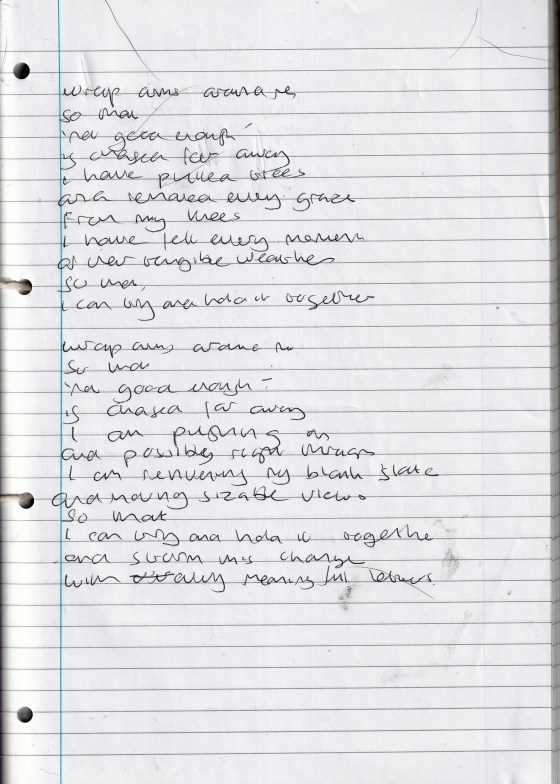 wrap arms around me
so that
'not good enough'
is chased far away
I have pulled trees
and removed every graze
From my knees
I have felt every moment
of tangible
so that,
I can try and hold it together

wrap arms around me
so that
'not good enough'
is chased far away
I am pushing on
and possibly right through
I am renewing my blank slate
and having sizable views
so that
I can try and hold it together
and storm this change
with meaningful